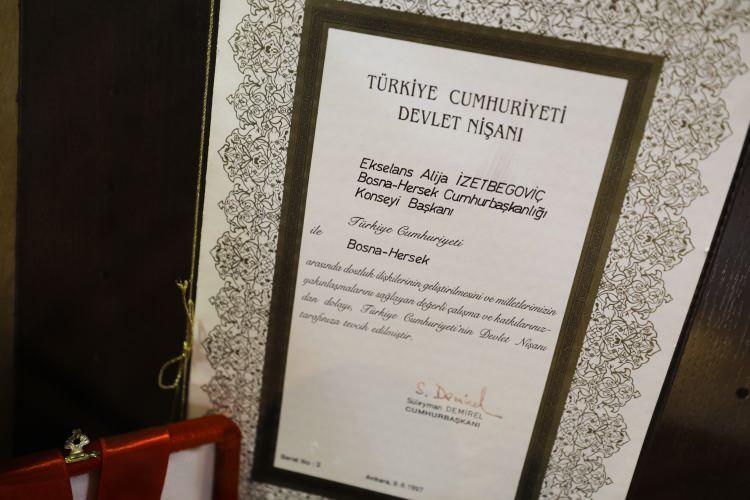 TÜRKİYE CUMHURİYETİ
DEVLET NİŞANI
Ekselans Alija İZETBEGOVİÇ
Bosna-Hersek Cumhurbaşkanlığı
Konseyi Başkanı
Türkiye Cumhuriyeti
ile
Bosna-Hersek
arasında dostluk ilişkilerinin geliştirilmesini ve milletlerimizin
yakınlaşmalarını sağlayan değerli çalışma ve katkılarınız-
dan dolayı, Türkiye Cumhuriyeti'nin Devlet Nişanı
tarafınıza tevcih edilmiştir.
S. Demirel
Süleyman DEMİREL
CUMHURBAŞKANI
Serial No : 2
Ankara, 1997